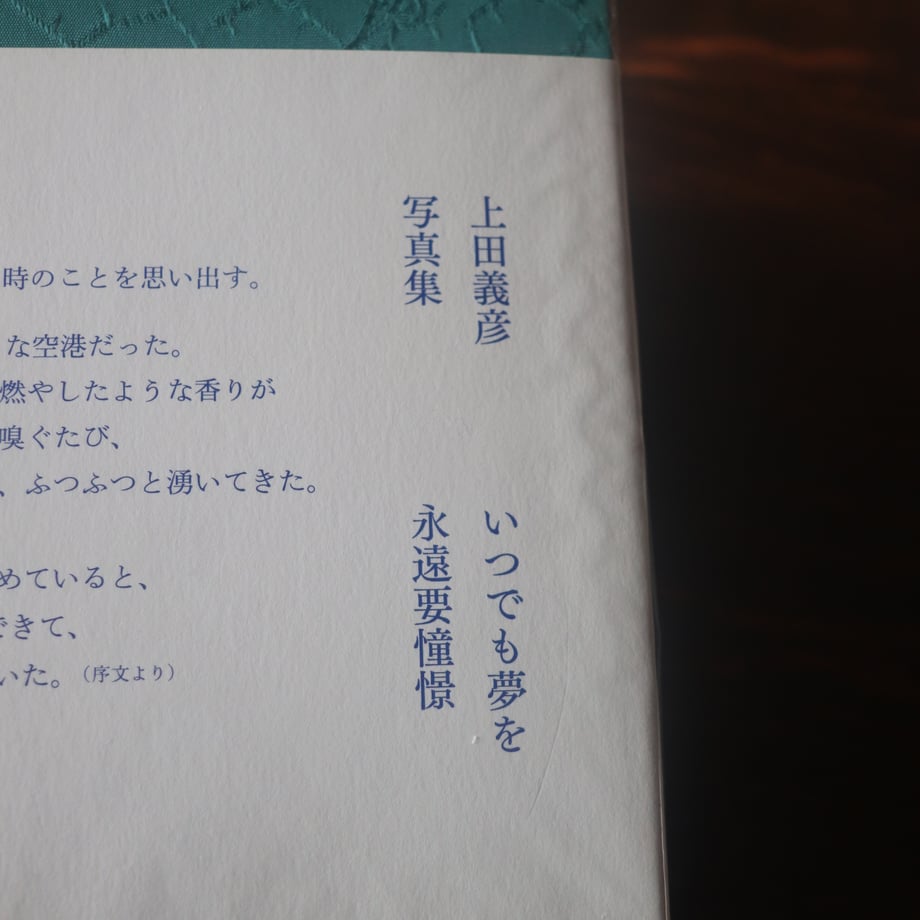 上田義彦
写真集
いつでも夢を
永遠要憧憬
時のことを思い出す。
な空港だった。
燃やしたような香りが
嗅ぐたび、
、ふつふつと湧いてきた。
めていると、
できて、
いた。（序文より）